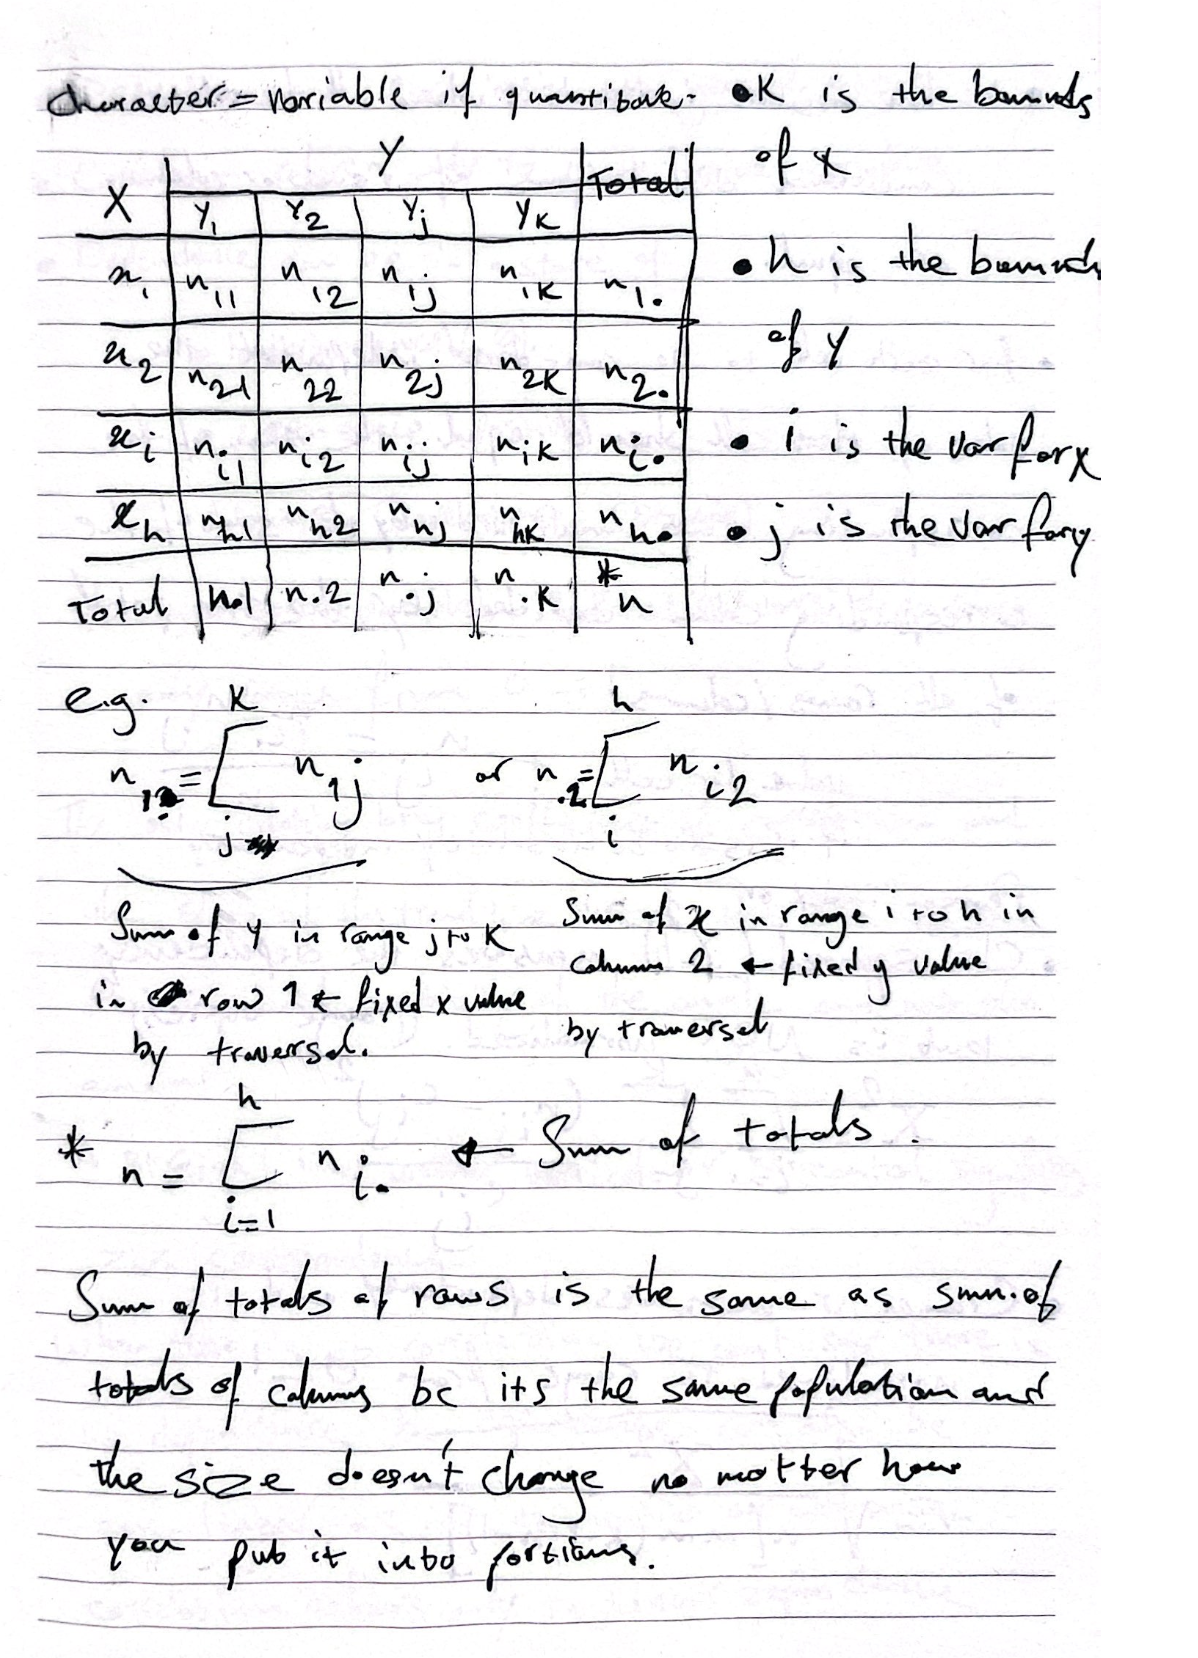 character = variable if quantitave.
Y
X Y1 Y2 Yj YK Total
x1 n11 n12 n1j n1K n1.
x2 n21 n22 n2j n2K n2.
xi ni1 ni2 nij niK ni.
xh nh1 nh2 nhj nhK nh.
Total n.1 n.2 n.j n.K *n
• K is the bounds
of x
• h is the bounds
of Y
• i is the var for x
• j is the var for y
e.g.
K
n1. = Σ n1j
j
or
h
n.2 = Σ ni2
i
Sum of y in range j to K
in row 1 ← fixed x value
by traversal.
Sum of x in range i to h in
column 2 ← fixed y value
by traversal
h
* n = Σ ni. ← Sum of totals.
i=1
Sum of totals of rows is the same as sum of
totals of columns bc its the same population and
the size doesn't change no matter how
you put it into portions.